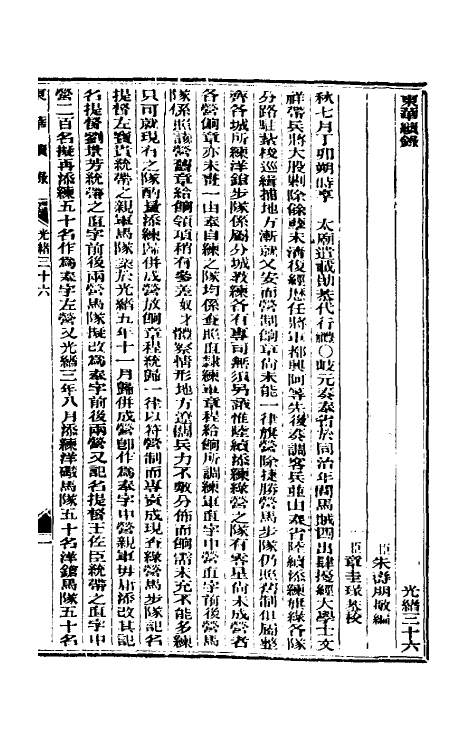 東華續錄
光緒三十六
臣朱壽朋敬編
臣章圭瑑恭校
秋七月丁卯朔時享 太廟遣載勛恭代行禮○岐元奏奉省於同治年間馬賊四出肆擾經大學士文
祥帶兵將大股剿除餘孽未清復經歷任將軍都興阿等先後奏調客兵並由奉省陸續添練旗綠各隊
分路駐紮梭巡緝捕地方漸就乂安而營制餉章尚未能一律旗營除捷勝營馬步隊仍照舊制俱屬整
齊各城所練洋鎗步隊係屬分城教練各有專司無須另議惟陸續添練綠營之隊有零星尚未成營者
各營餉章亦未畫一由奉自練之隊均係查照直隸練軍章程給餉所調練軍直字中營直字前後營馬
隊係照該營舊章給餉領項稍有參差奴才體察情形地方遼闊兵力不敷分佈而餉需未充不能多練
只可就現有之隊酌量添練歸併成營放餉章程統歸一律以符營制而專責成現查綠營馬步隊記名
提督左寶貴統帶之親軍馬隊業於光緒五年十一月歸併成營卽作爲奉字中營親軍毋庸添改其記
名提督劉景芳統帶之直字前後兩營馬隊擬改爲奉字前後兩營又記名提督王佐臣統帶之直字中
營二百名擬再添練五十名作爲奉字左營又光緒三年八月添練洋礮馬隊五十名洋鎗馬隊五十名
東華續錄 光緒三十六
一